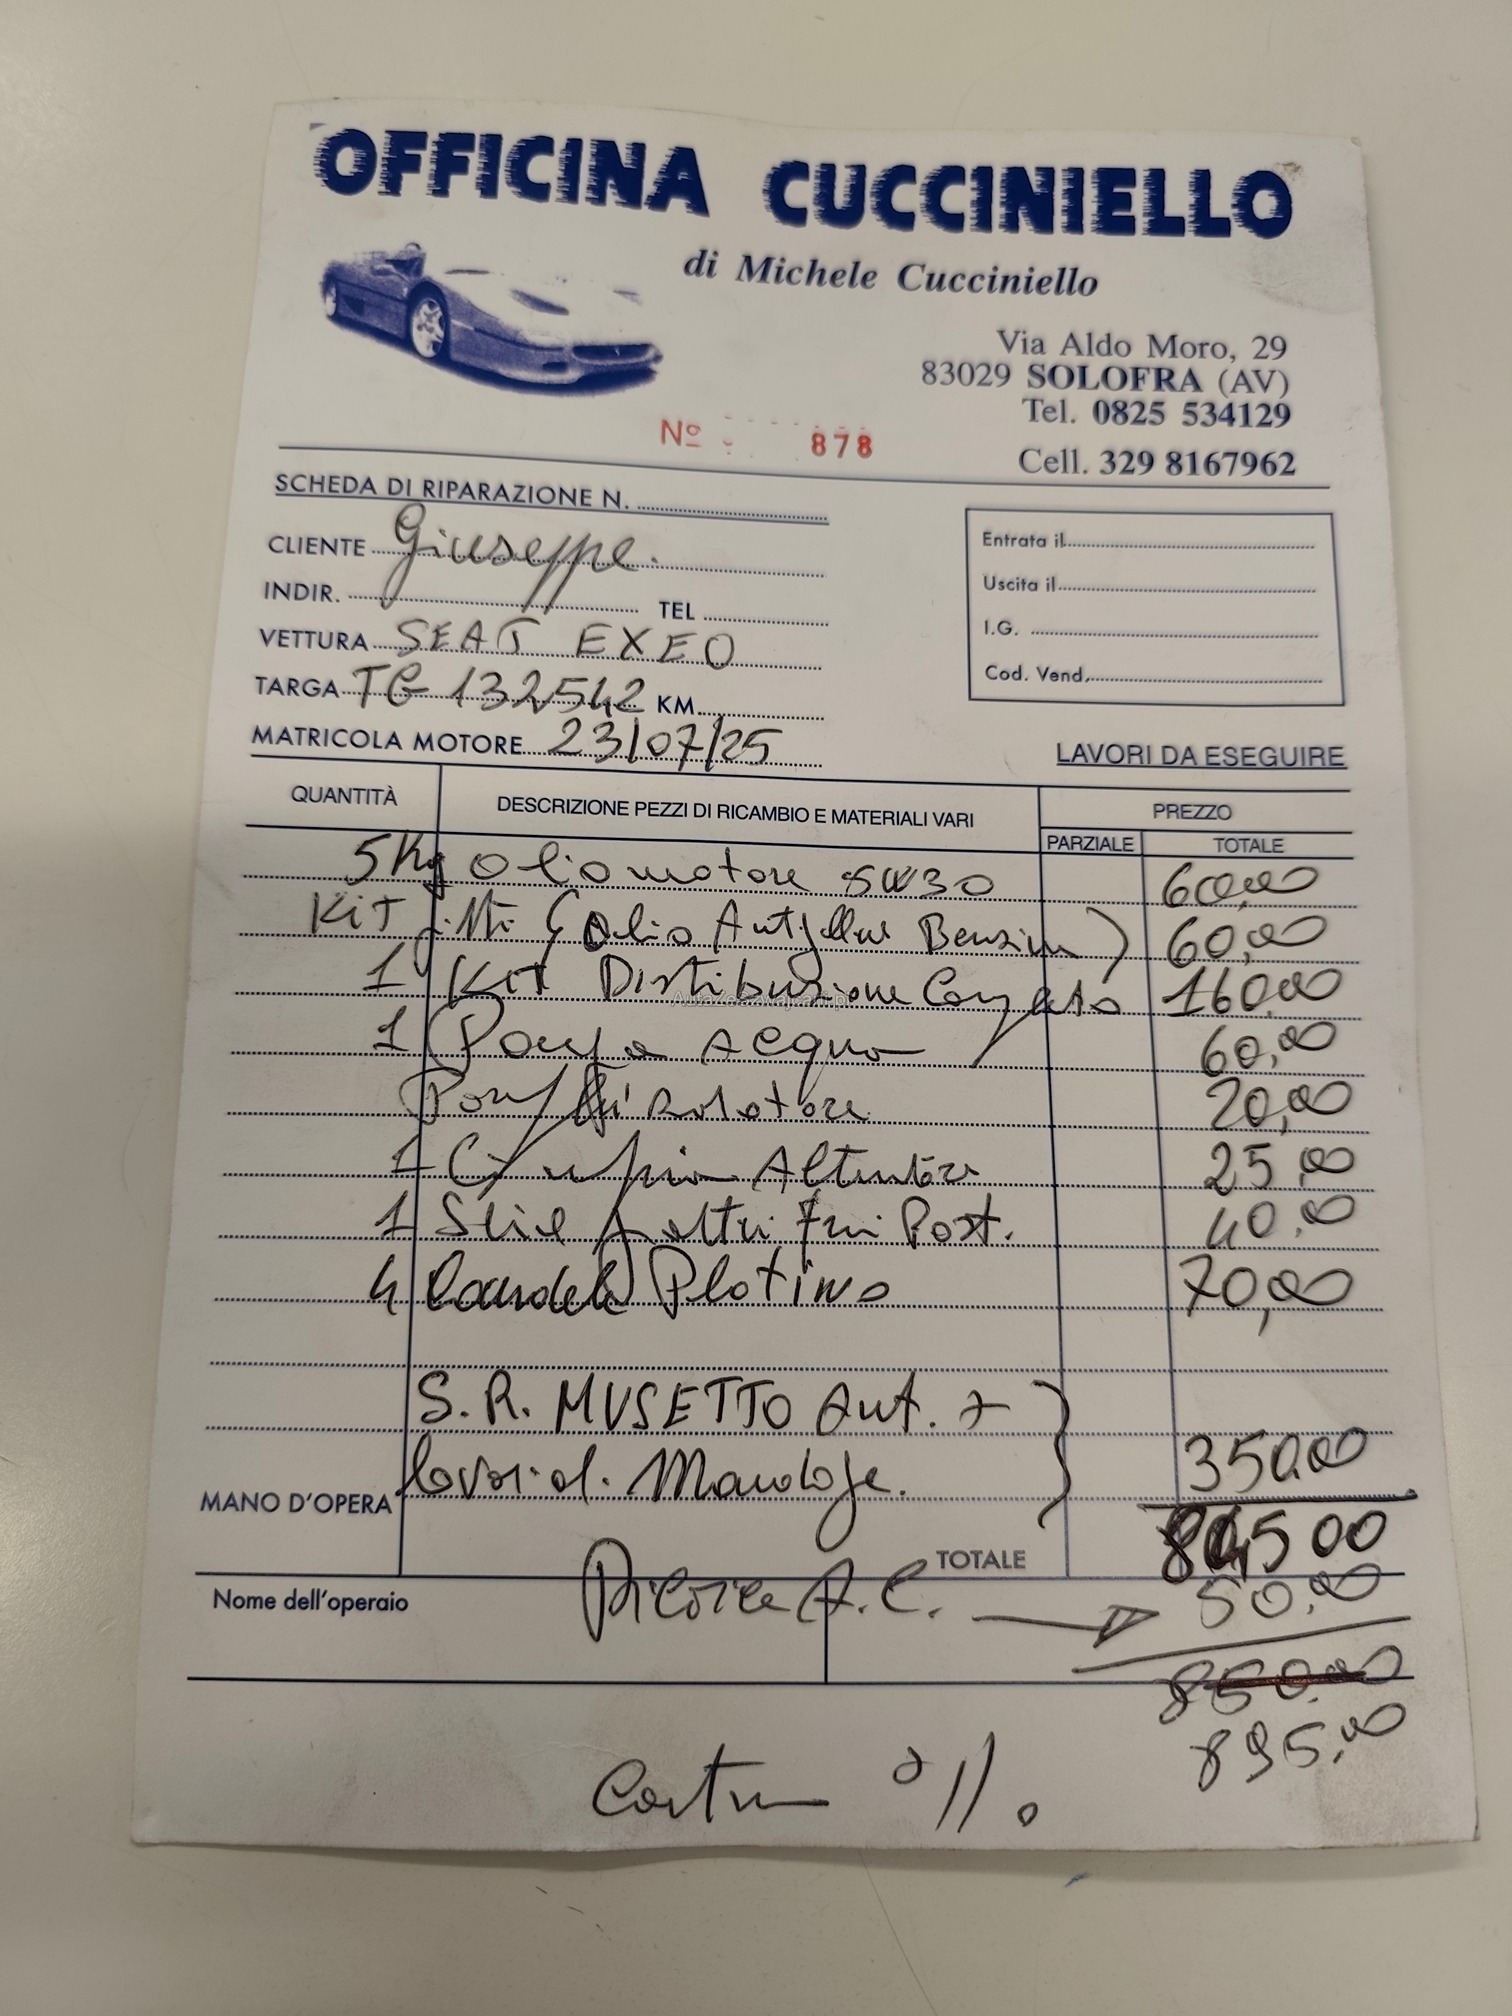 OFFICINA CUCCINIELLO
di Michele Cucciniello
Via Aldo Moro, 29
83029 SOLOFRA (AV)
Tel. 0825 534129
Cell. 329 8167962
Nº 878
SCHEDA DI RIPARAZIONE N.
CLIENTE Giuseppe.
INDIR. TEL
VETTURA SEAT EXEO
TARGA TG 132542 KM.
MATRICOLA MOTORE 23/07/25
Entrata il
Uscita il
I.G.
Cod. Vend.
LAVORI DA ESEGUIRE
QUANTITÀ DESCRIZIONE PEZZI DI RICAMBIO E MATERIALI VARI PREZZO
PARZIALE TOTALE
5Kg olio motore 5W30 60,00
Kit Olio Benzina) 60,00
1 Kit Distribuzione 160,00
1 Pompa Acqua 60,00
20,00
1 Alternatore 25,00
1 Serie Post. 40,00
4 Candele Platino 70,00
S.R. MUSETTO Aut. +
MANO D'OPERA lavori di 350,00
TOTALE 845 00
Nome dell'operaio
Ricarica A.C. 50,00
850,00
895,00